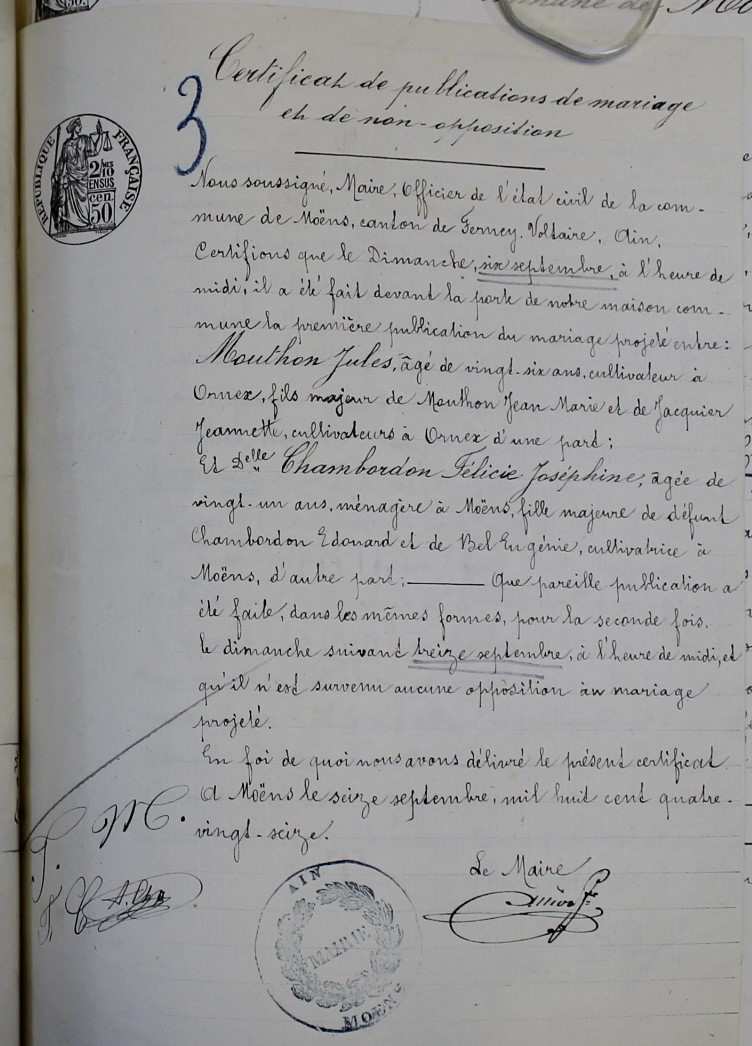 mune de Mo
Certificat de publications de mariage
et de non-opposition
3
RÉPUBLIQUE FRANÇAISE
2/10
EN SUS
cen.
50
Nous soussigné, Maire, Officier de l'état civil de la com-
mune de Moëns, canton de Ferney-Voltaire, Ain,
Certifions que le Dimanche, six septembre, à l'heure de
midi, il a été fait devant la porte de notre maison com-
mune la première publication du mariage projeté entre:
Mouthon Jules, âgé de vingt-six ans, cultivateur à
Ornex, fils majeur de Mouthon Jean Marie et de Jacquier
Jeannette, cultivateurs à Ornex d'une part;
Et Delle Chambordon Félicie Joséphine, âgée de
vingt-un ans, ménagère à Moëns, fille majeure de défunt
Chambordon Edouard et de Bel Eugénie, cultivatrice à
Moëns, d'autre part; Que pareille publication a
été faite, dans les mêmes formes, pour la seconde fois,
le dimanche suivant treize septembre, à l'heure de midi, et
qu'il n'est survenu aucune opposition au mariage
projeté.
En foi de quoi nous avons délivré le présent certificat
A Moëns le seize septembre, mil huit cent quatre-
vingt-seize.
J. M.
F. C
Le Maire
AIN
MAIRIE
MOËNS